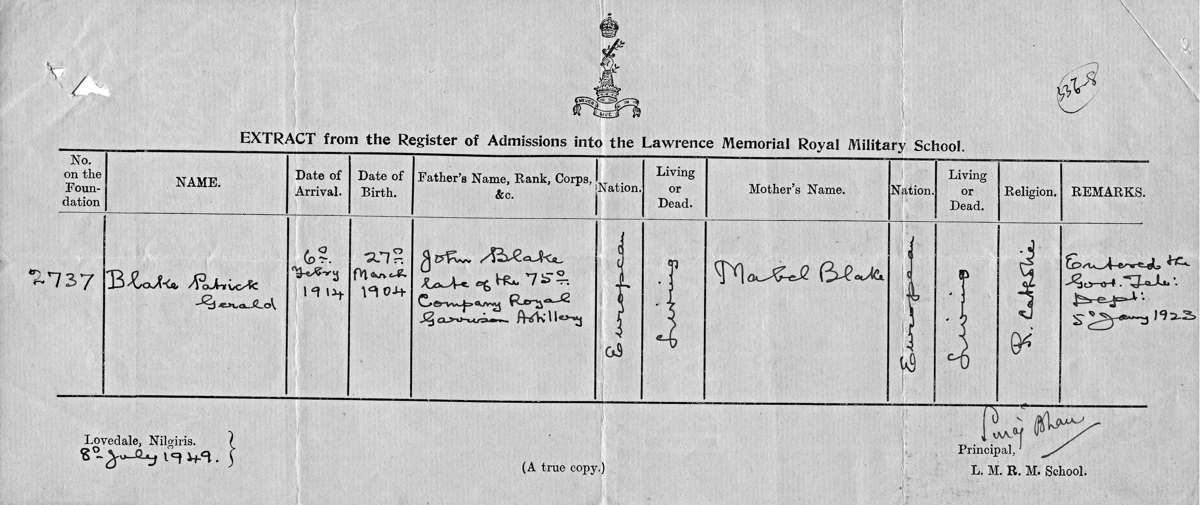 NEVER GIVE IN
336-8
EXTRACT from the Register of Admissions into the Lawrence Memorial Royal Military School.
No. on the Foun- dation
NAME.
Date of Arrival.
Date of Birth.
Father's Name, Rank, Corps, &c.
Nation.
Living or Dead.
Mother's Name.
Nation.
Living or Dead.
Religion.
REMARKS.
2737
Blake Patrick
Gerald
6o
Febry
1914
27o
March
1904
John Blake
late of the 75o
Company Royal
Garrison Artillery
European
Living
Mabel Blake
European
Living
R. Catholic
Entered the
Govt. Tele:
Dept:
5o Jany 1923
Lovedale, Nilgiris.
8o July 1949.
(A true copy.)
Suraj Bhan
Principal,
L. M. R. M. School.